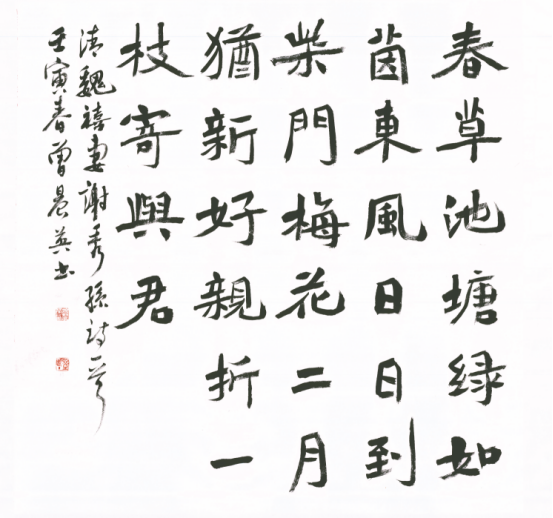 春草池塘绿如
茵東風日日到
柴門梅花二月
猶新好親折一
枝寄與君
清魏禧妻謝秀孫诗一首
壬寅春曾景英书